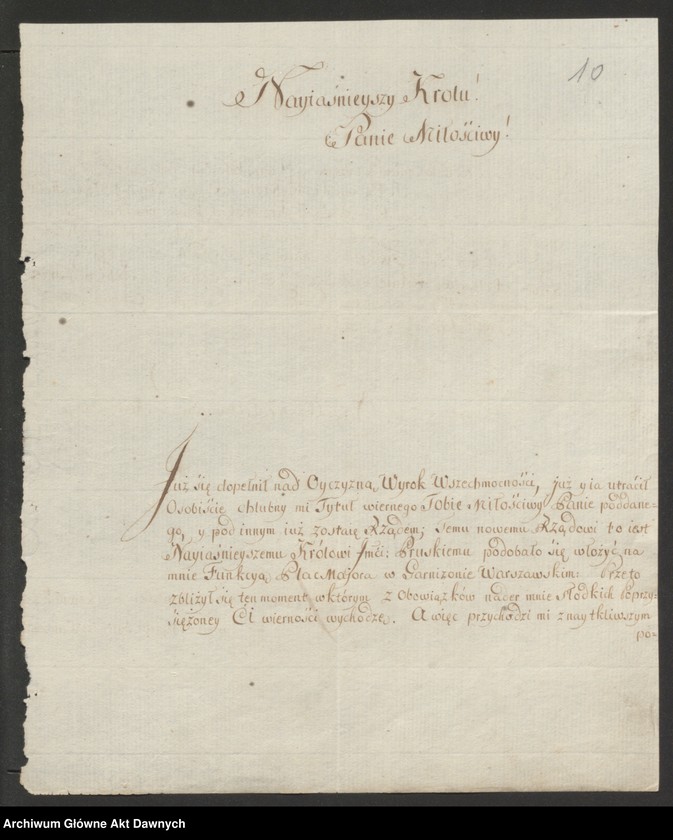 10
Nayiaśnieyszy Krolu!
Panie Miłościwy!
Już się dopełnił nad Oyczyzną Wyrok Wszechmocności, już y ia utracił
Osobiście chlubny mi Tytuł wiernego Tobie Miłościwy Panie poddane=
go, y pod innym iuż zostaię Rządem; temu nowemu Rządowi to iest
Nayiaśnieyszemu Królowi Jmći: Pruskiemu podobało się włożyć na
mnie Funkcyą Plac Majora w Garnizonie Warszawskim: Przeto
zbliżył się ten moment w którym z Obowiązków nader mnie słodkich Poprzy=
siężoney Ci wierności wychodzę. A więc przychodzi mi z naytkliwszym
po=
Archiwum Główne Akt Dawnych